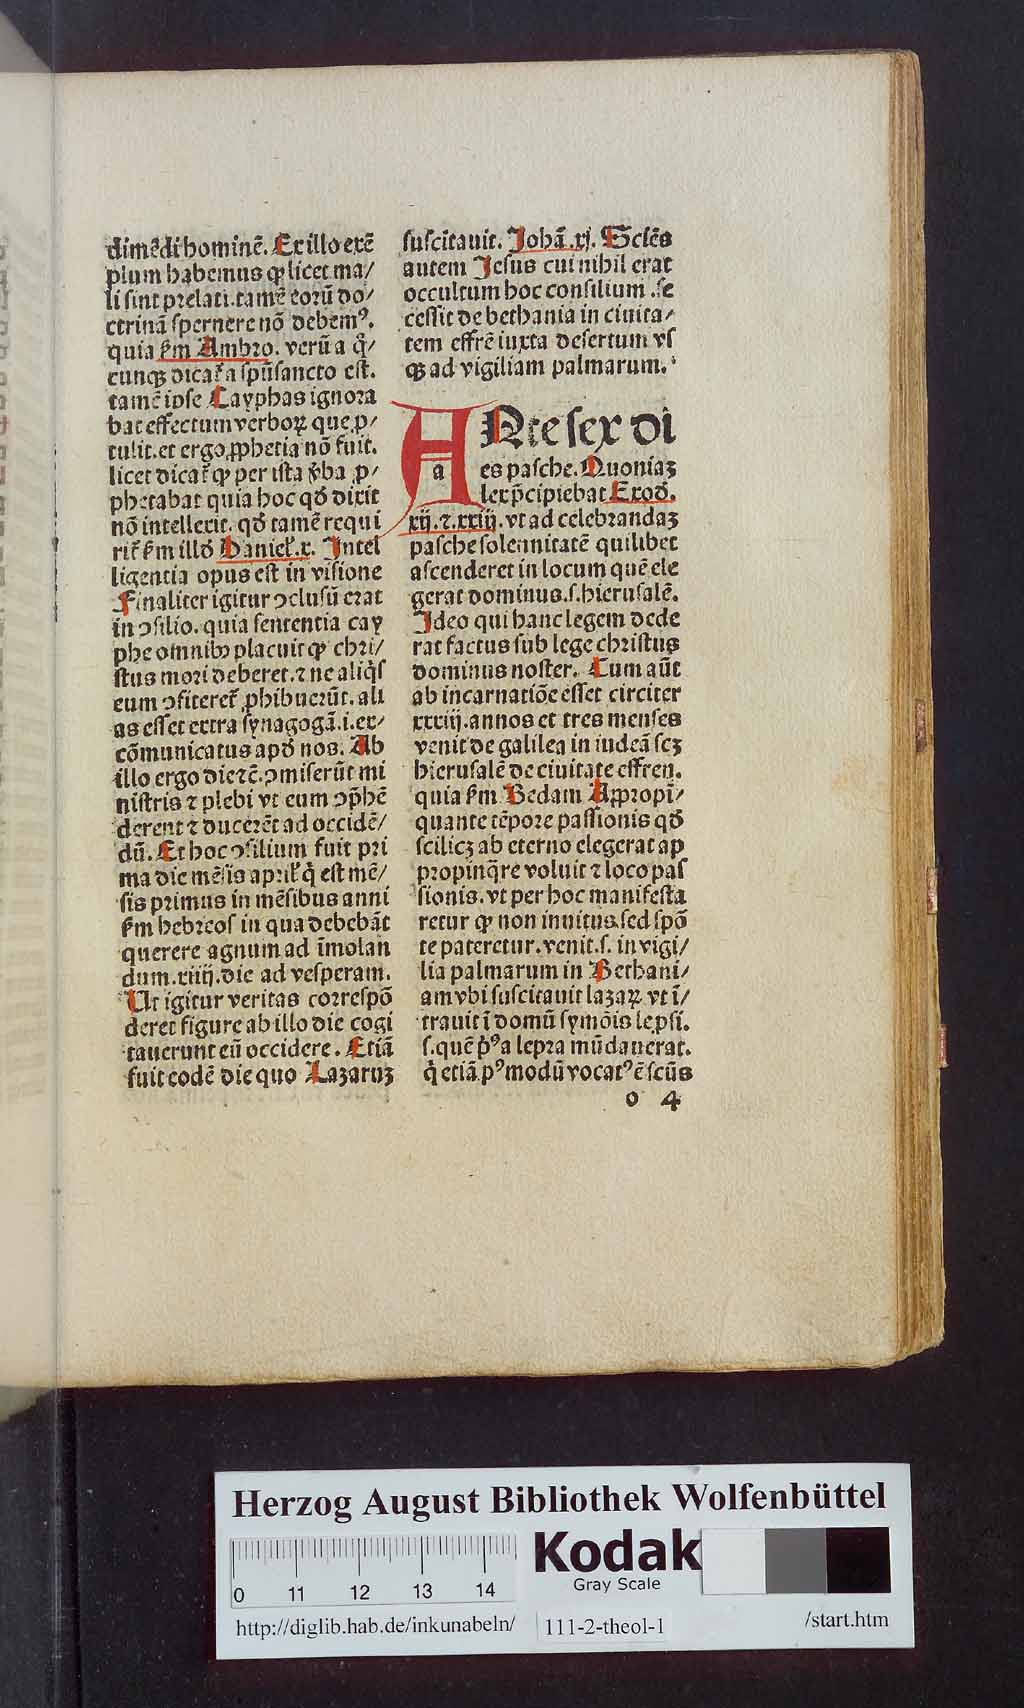 dimēdi hominē. Ex illo exē
plum habemus ꝙ licet ma/
li sint prelati. tamē eorū do/
ctrinā spernere nō debemꝰ.
quia ẜm Ambro. verū a q̄/
cunqꝫ dicat̄ a spūsancto est.
tamē ipse Cayphas ignora
bat effectum verboꝝ que ꝓ/
tulit. et ergo ꝓphetia nō fuit.
licet dicat̄ ꝙ per ista v̄ba ꝓ/
phetabat quia hoc qd̄ dixit
nō intellexit. qd̄ tamē requi
rit̄ ẜm illd̄ Daniel̄. x. Intel
ligentia opus est in visione
Finaliter igitur ↄclusū erat
in ↄsilio. quia sententia cay
phe omnibꝰ placuit ꝙ chri/
stus mori deberet. ⁊ ne aliq̄s
eum ↄfiteret̄ ꝓhibuerūt. ali
as esset extra synagogā. i. ex/
cōmunicatus apd̄ nos. Ab
illo ergo die rē. ↄmiserūt mi
nistris ⁊ plebi vt eum ↄp̄hē
derent ⁊ ducerēt ad occidē/
dū. Et hoc ↄsilium fuit pri
ma die mēsis april̄ q̄ est mē/
sis primus in mēsibus anni
ẜm hebreos in qua debebāt
querere agnum ad īmolan
dum. xiiij. die ad vesperam.
Ut igitur veritas correspō
deret figure ab illo die cogi
tauerunt eū occidere. Etiā
fuit eodē die quo Lazaruꝫ
suscitauit. Johā. xj. Sciēs
autem Jesus cui nihil erat
occultum hoc consilium. se
cessit de bethania in ciuita/
tem effrē iuxta desertum vs
qꝫ ad vigiliam palmarum.
ANte sex di
a
es pasche. Quoniaꝫ
lex p̄cipiebat Exod̄.
xij. ⁊. xxiij. vt ad celebrandaꝫ
pasche solennitatē quilibet
ascenderet in locum quē ele
gerat dominus. s. hierusalē.
Ideo qui hanc legem dede
rat factus sub lege christus
dominus noster. Cum aūt
ab incarnatiōe esset circiter
xxxiij. annos et tres menses
venit de galilea in iudeā scꝫ
hierusalē de ciuitate effren.
quia ẜm Bedam Appropi/
quante tēpore passionis qd̄
scilicꝫ ab eterno elegerat ap
propinq̄re voluit ⁊ loco pas
sionis. vt per hoc manifesta
retur ꝙ non inuitus. sed spō
te pateretur. venit. s. in vigi/
lia palmarum in Bethani/
am vbi suscitauit lazaꝝ vt ī/
trauit ī domū symōis lepsi.
s. quē p̄ꝰ a lepra mūdauerat.
q̄ etiā pꝰmodū vocatꝰ ē scūs
o 4
Herzog August Bibliothek Wolfenbüttel
0 11 12 13 14
Kodak
Gray Scale
http://diglib.hab.de/inkunabeln/ 111-2-theol-1 /start.htm